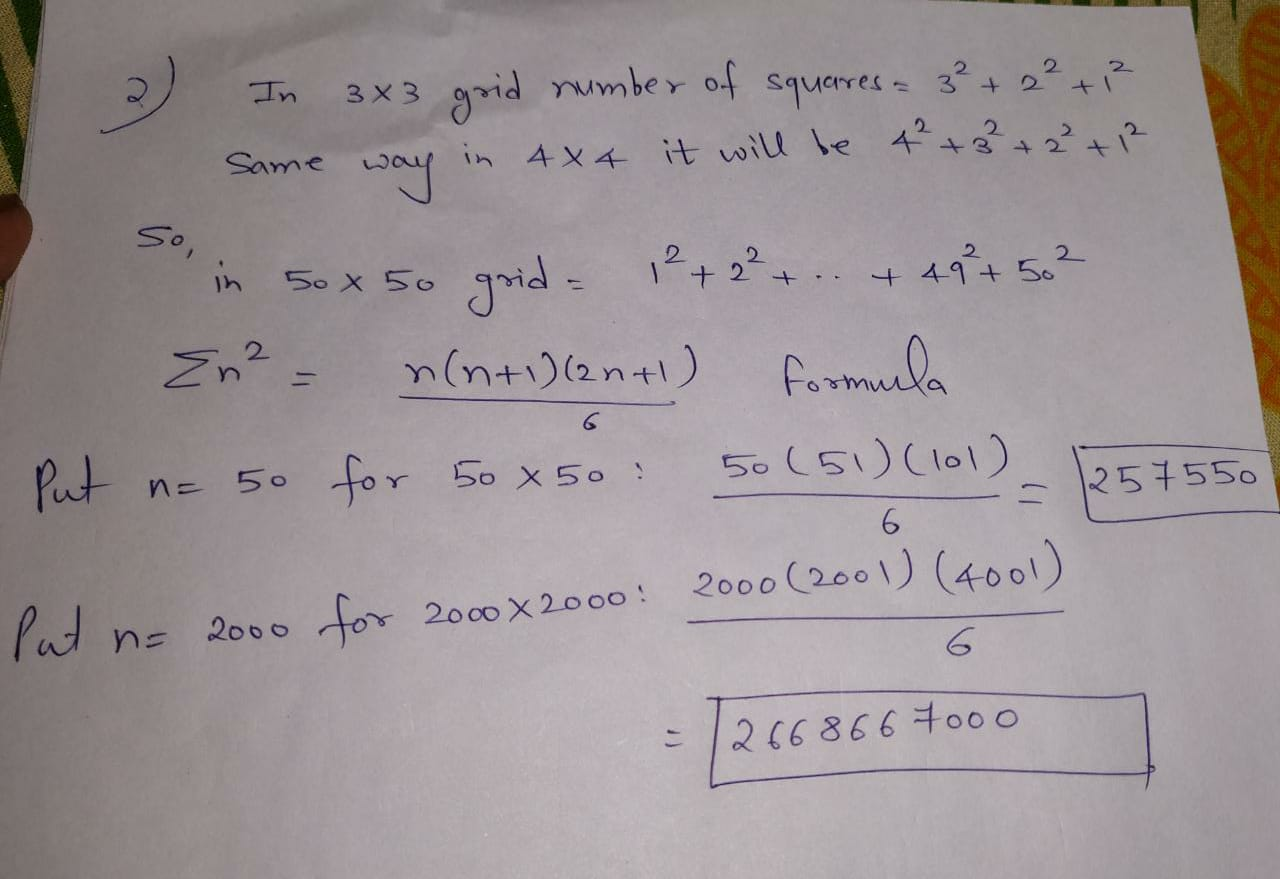 2) In 3×3 grid number of squares = 3² + 2² + 1²
Same way in 4×4 it will be 4² + 3² + 2² + 1²
So,
in 50×50 grid = 1² + 2² + .. + 49² + 50²
Σn² = n(n+1)(2n+1)/6 formula
Put n= 50 for 50×50 : 50(51)(101)/6 = 257550
Put n= 2000 for 2000×2000: 2000(2001)(4001)/6
= 2668667000